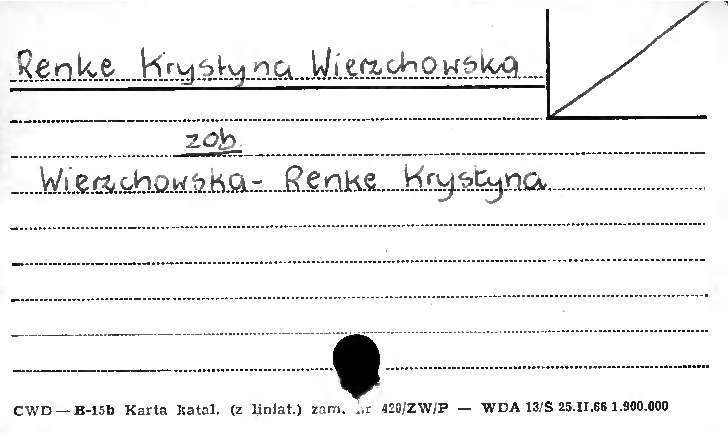 Renke Krystyna Wierzchowska
zob.
Wierzchowska - Renke Krystyna
CWD — B-15b Karta katal. (z liniat.) zam. nr 420/ZW/P — WDA 13/S 25.II.66 1.900.000